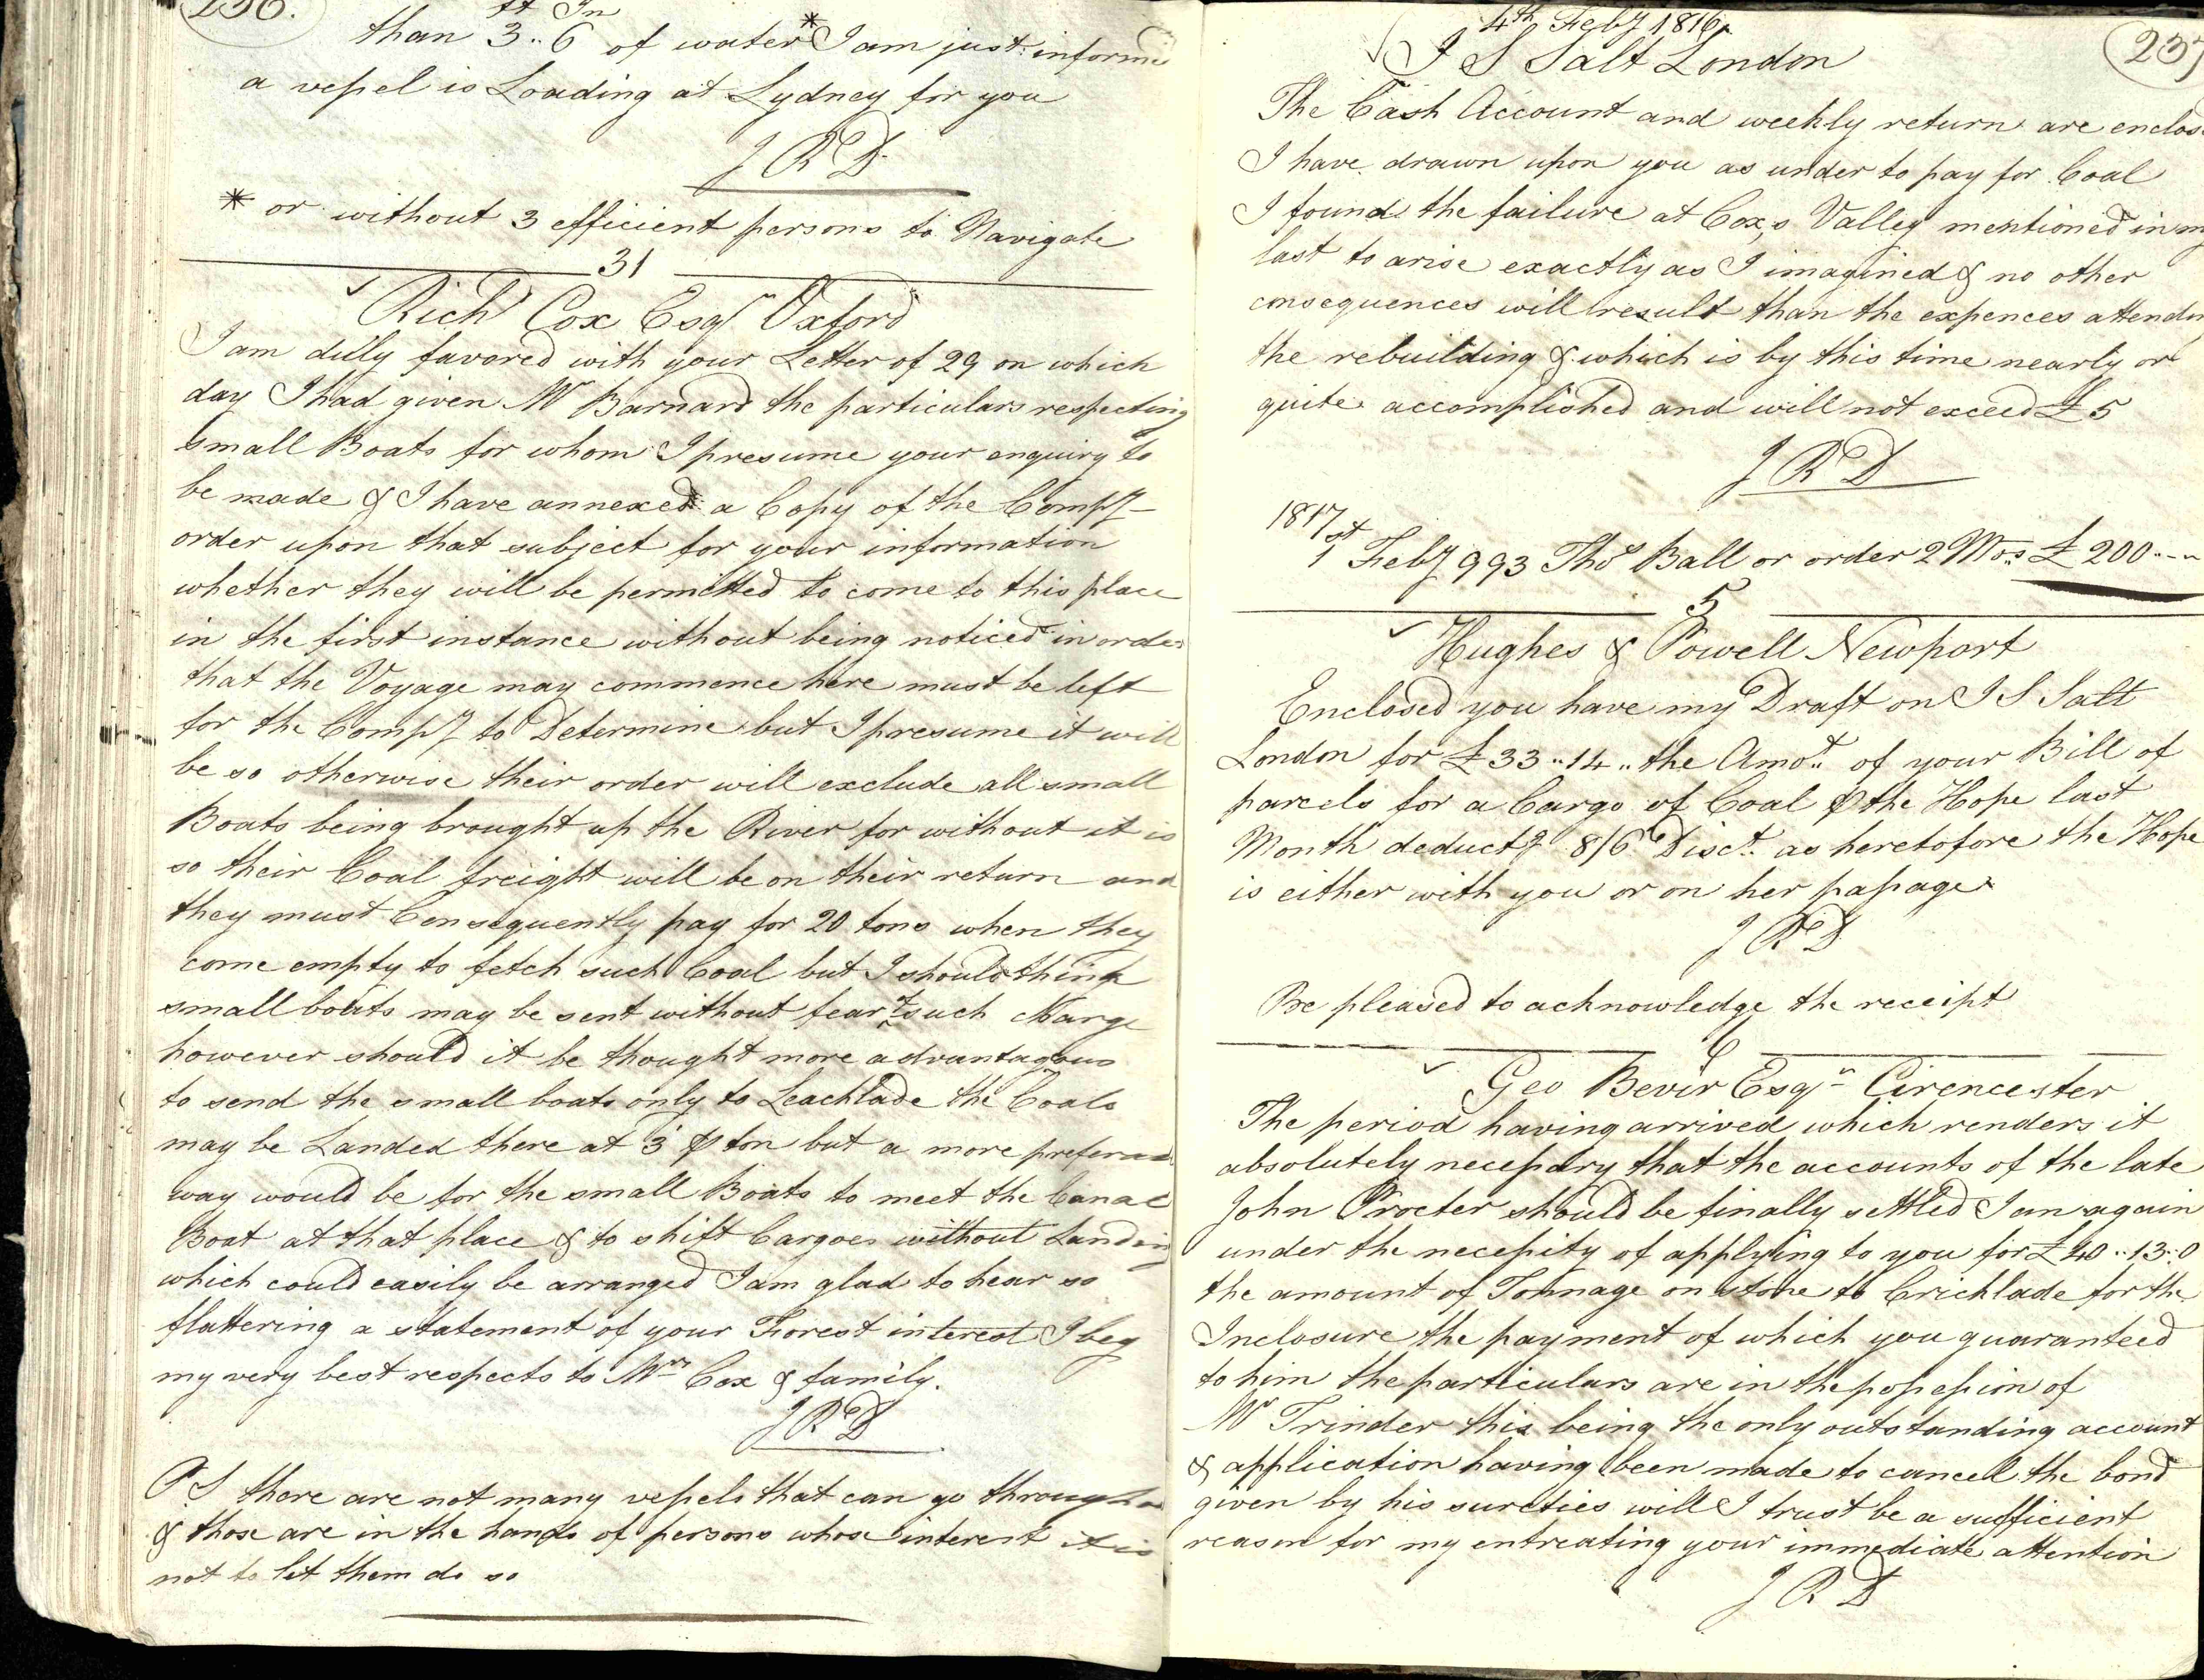 236.
ft In
than 3..6 of water * I am just inform
a vessel is Loading at Lydney for you
J R D
* or without 3 efficient persons to Navigate
31
Richd Cox Esqr Oxford
I am dully favored with your Letter of 29 on which
day I had given Mr Barnard the particulars respecting
small Boats for whom I presume your enquiry to
be made & I have annexed a Copy of the Compy
order upon that subject for your information
whether they will be permitted to come to this place
in the first instance without being noticed in order
that the Voyage may commence here must be left
for the Compy to Determine but I presume it will
be so otherwise their order will exclude all small
Boats being brought up the River for without it is
so their Coal freight will be on their return and
they must Consequently pay for 20 tons when they
come empty to fetch such Coal but I should think
small boats may be sent without fear of such Charge
however should it be thought more advantageous
to send the small boats only to Leachlade the Coals
may be Landed there at 3 ⅌ ton but a more prefer
way would be for the small Boats to meet the Canal
Boat at that place & to shift Cargoes without Landing
which could easily be arranged I am glad to hear so
flattering a statement of your Forest interest I beg
my very best respects to Mrs Cox & family.
J R D
P S there are not many vessels that can go through
& those are in the hands of persons whose interest it is
not to let them do so
4th Feby 1816
237
I S Salt London
The Cash Account and weekly return are enclos
I have drawn upon you as under to pay for Coal
I found the failure at Cox,s Valley mentioned in my
last to arise exactly as I imagined & no other
consequences will result than the expences attend
the rebuilding & which is by this time nearly or
quite accomplished and will not exceed £5
J R D
1817
1st Feby 993 Thos Ball or order 2 Mos £200..-..
5
Hughes & Powell Newport
Enclosed you have my Draft on I S Salt
London for £33..14.. the Amot. of your Bill of
parcels for a Cargo of Coal ⅌ the Hope last
Month deductg 8/6 Disct. as heretofore the Hope
is either with you or on her passage
J R D
Be pleased to acknowledge the receipt
6
Geo Bevir Esqr Cirencester
The period having arrived which renders it
absolutely necessary that the accounts of the late
John Procter should be finally settled I am again
under the necessity of applying to you for £40..13..0
the amount of Tonnage on stone to Cricklade for the
Inclosure the payment of which you guaranteed
to him the particulars are in the possession of
Mr Trinder this being the only outstanding account
& application having been made to cancel the bond
given by his sureties will I trust be a sufficient
reason for my entreating your immediate attention
J R D